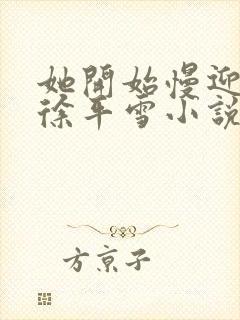 她開始慢迎
徐年雪小說
方京子